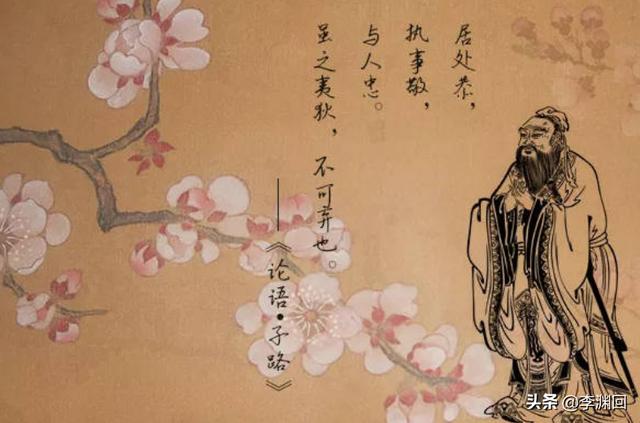 居处恭，
执事敬，
与人忠。
虽之夷狄，不可弃也。
——《论语•子路》
头条 @李渊回